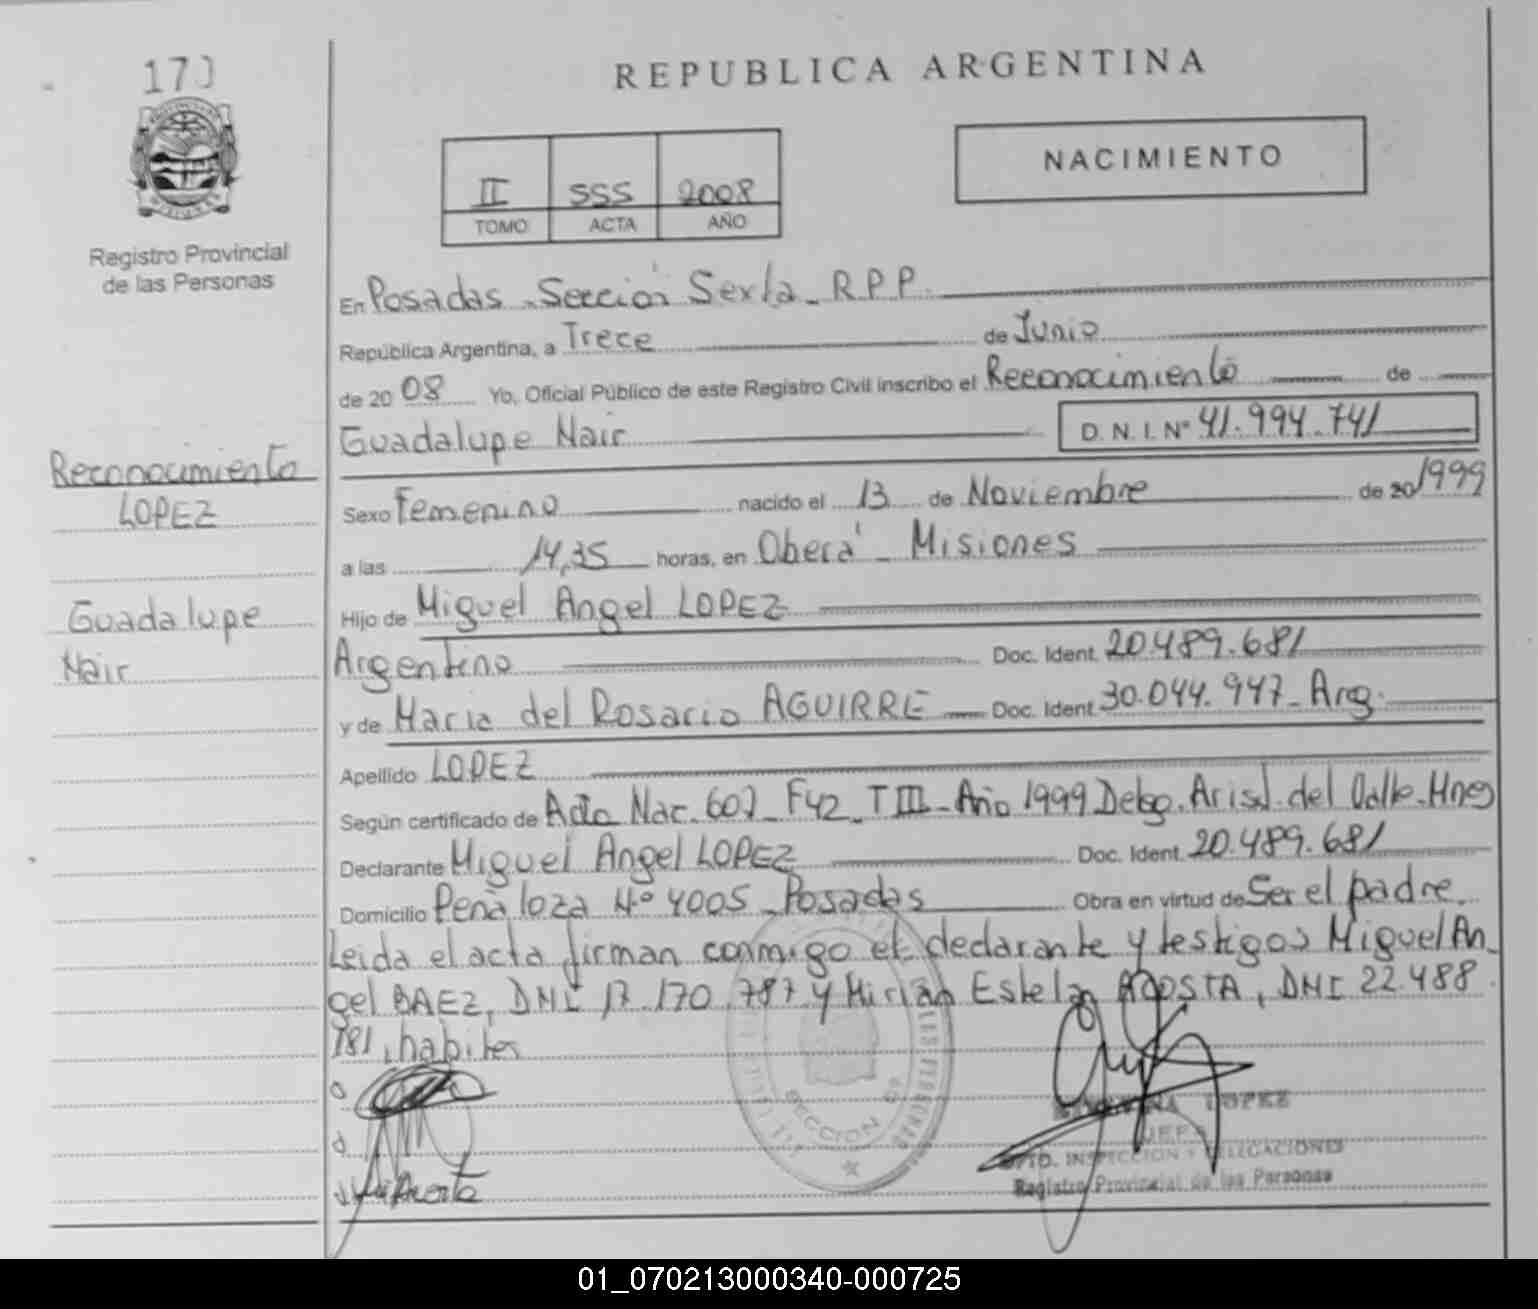 170
REPUBLICA ARGENTINA
NACIMIENTO
II SSS 2008
TOMO ACTA AÑO
Registro Provincial
de las Personas
En Posadas - Sección Sexta - R.P.P.
República Argentina, a Trece de Junio
de 20 08 Yo, Oficial Público de este Registro Civil inscribo el Reconocimiento de
Guadalupe Nair D. N. I. Nº 41.994.741
Reconocimiento
LOPEZ
Guadalupe
Nair
Sexo Femenino nacido el 13 de Noviembre de 20 1999
a las 14,35 horas, en Oberá - Misiones
Hijo de Miguel Angel LOPEZ
Argentino Doc. Ident. 20.489.681
y de Maria del Rosario AGUIRRE Doc. Ident. 30.044.947 - Arg.
Apellido LOPEZ
Según certificado de Acta Nac. 607 - F42 - T III - Año 1999 Deleg. Arist. del Valle - Mnes
Declarante Miguel Angel LOPEZ Doc. Ident. 20.489.681
Domicilio Peñaloza Nº 4005 - Posadas Obra en virtud de Ser el padre.
Leida el acta firman conmigo el declarante y testigos Miguel An-
gel BAEZ, DNI 17.170.787 y Mirian Estela ACOSTA, DNI 22.488.
781, habiles
SECCION
LOPEZ
JEFE
DPTO. INSPECCION Y DELEGACIONES
Registro Provincial de las Personas
01_070213000340-000725